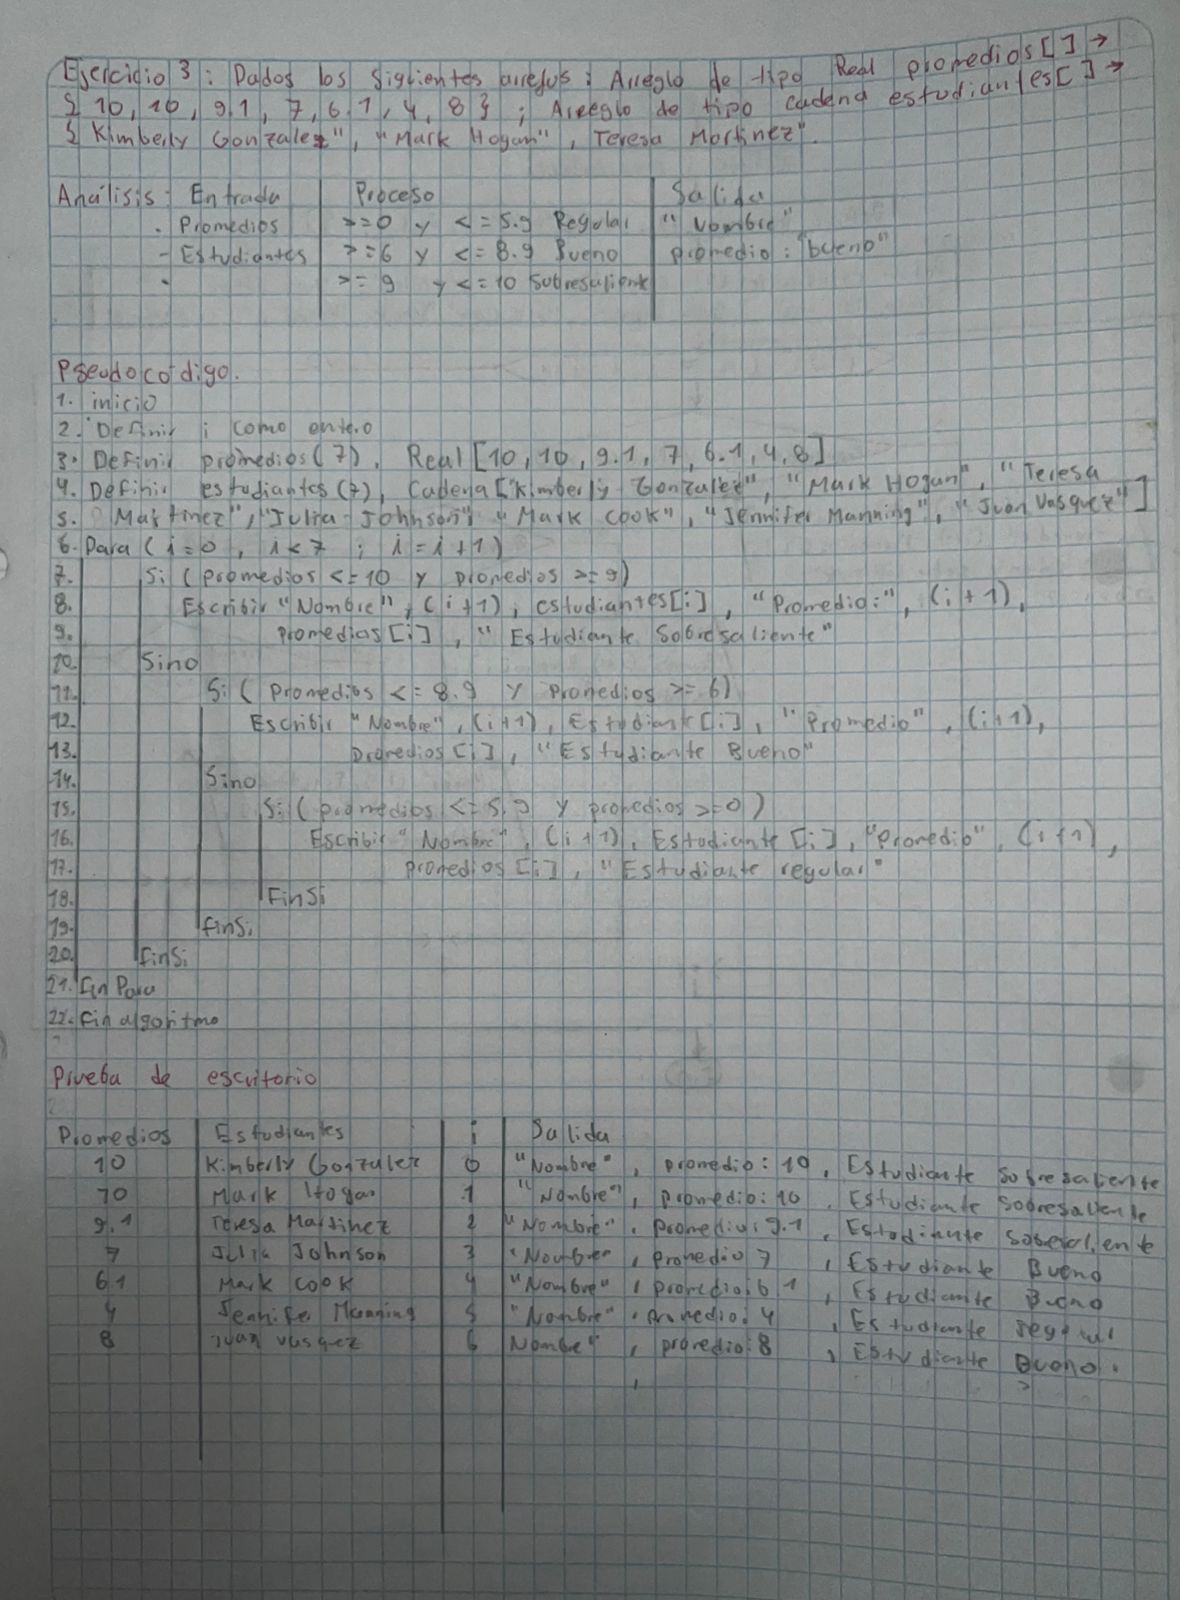 Ejercicio 3: Dados los siguientes arreglos: Arreglo de tipo Real promedios[] →
{ 10, 10, 9.1, 7, 6.1, 4, 8 } ; Arreglo de tipo cadena estudiantes[] →
{ Kimberly Gonzalez", "Mark Hogan", Teresa Martinez".
Análisis: Entrada Proceso Salida
- Promedios >=0 y <=5.9 Regular "Nombre"
- Estudiantes >=6 y <=8.9 Bueno promedio: "bueno"
- >=9 y <=10 Sobresaliente
Pseudocódigo.
1. inicio
2. Definir i como entero
3. Definir promedios(7), Real [10, 10, 9.1, 7, 6.1, 4, 8]
4. Definir estudiantes(7), Cadena ["Kimberly Gonzalez", "Mark Hogan", "Teresa
5. Martinez", "Julia Johnson", "Mark Cook", "Jennifer Manning", "Juan Vasquez"]
6. Para (i=0, i<7 ; i=i+1)
7. Si (promedios <=10 y promedios >=9)
8. Escribir "Nombre", (i+1), estudiantes[i], "Promedio:", (i+1),
9. promedios[i], "Estudiante Sobresaliente"
10. Sino
11. Si (Promedios <= 8.9 y Promedios >= 6)
12. Escribir "Nombre", (i+1), Estudiante[i], "Promedio", (i+1),
13. Promedios[i], "Estudiante Bueno"
14. Sino
15. Si (promedios <=5.9 y promedios >=0)
16. Escribir "Nombre", (i+1), Estudiante[i], "Promedio", (i+1),
17. promedios[i], "Estudiante regular"
18. FinSi
19. finSi
20. finSi
21. Fin Para
22. Fin algoritmo
Prueba de escritorio
Promedios Estudiantes i Salida
10 Kimberly Gonzalez 0 "Nombre", promedio: 10, Estudiante Sobresaliente
10 Mark Hogan 1 "Nombre", promedio: 10, Estudiante Sobresaliente
9.1 Teresa Martinez 2 "Nombre", promedio: 9.1, Estudiante Sobresaliente
7 Julia Johnson 3 "Nombre, promedio 7, Estudiante Bueno
6.1 Mark Cook 4 "Nombre", promedio: 6.1, Estudiante Bueno
4 Jennifer Manning 5 "Nombre", promedio: 4, Estudiante regular
8 Juan Vasquez 6 Nombre", promedio: 8, Estudiante Bueno.